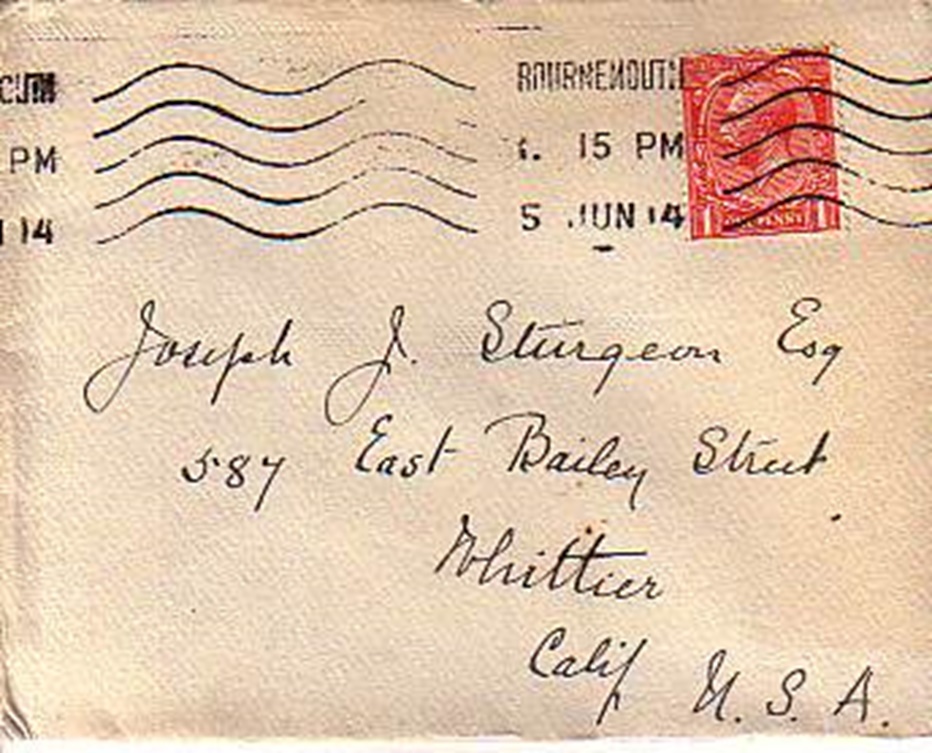 BOURNEMOUTH
15 PM
5 JUN 14
PM
14
1 PENNY 1
Joseph J. Sturgeon Esq
587 East Bailey Street
Whittier
Calif U.S.A.